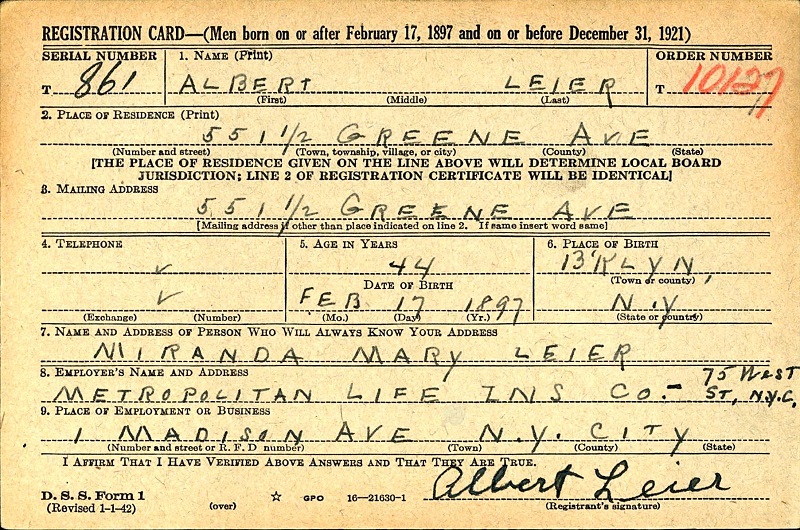 REGISTRATION CARD—(Men born on or after February 17, 1897 and on or before December 31, 1921)
SERIAL NUMBER 1. NAME (Print) ORDER NUMBER
T 861 ALBERT LEIER T 10127
(First) (Middle) (Last)
2. PLACE OF RESIDENCE (Print)
551 1/2 GREENE AVE
(Number and street) (Town, township, village, or city) (County) (State)
[THE PLACE OF RESIDENCE GIVEN ON THE LINE ABOVE WILL DETERMINE LOCAL BOARD
JURISDICTION; LINE 2 OF REGISTRATION CERTIFICATE WILL BE IDENTICAL]
3. MAILING ADDRESS
551 1/2 GREENE AVE
[Mailing address if other than place indicated on line 2. If same insert word same]
4. TELEPHONE 5. AGE IN YEARS 6. PLACE OF BIRTH
44 B'KLYN,
DATE OF BIRTH (Town or county)
FEB 17 1897 N.Y
(Exchange) (Number) (Mo.) (Day) (Yr.) (State or country)
7. NAME AND ADDRESS OF PERSON WHO WILL ALWAYS KNOW YOUR ADDRESS
MIRANDA MARY LEIER
8. EMPLOYER'S NAME AND ADDRESS 75 West
METROPOLITAN LIFE INS CO.- ST, N.Y.C,
9. PLACE OF EMPLOYMENT OR BUSINESS
1 MADISON AVE N.Y. CITY
(Number and street or R. F. D number) (Town) (County) (State)
I AFFIRM THAT I HAVE VERIFIED ABOVE ANSWERS AND THAT THEY ARE TRUE.
D. S. S. Form 1 Albert Leier
(Revised 1-1-42) (over) ☆ GPO 16—21630-1 (Registrant's signature)